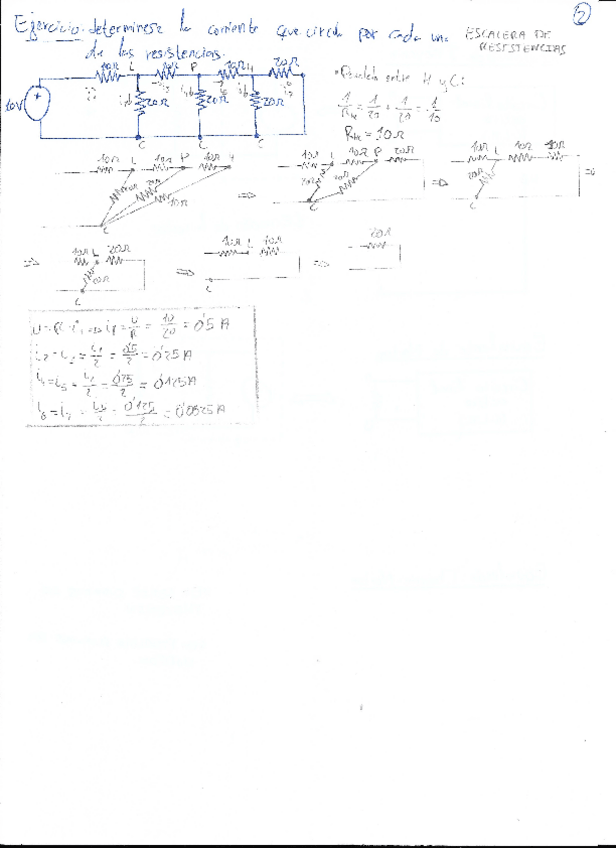 2
Ejercicio: determinese la corriente que circula por cada una ESCALERA DE RESISTENCIAS
de las resistencias.
10Ω L 10Ω P 10Ω H 20Ω
10V 20Ω 20Ω 20Ω
C C C
• Paralelo entre H y C:
1/R = 1/20 + 1/20 = 1/10
R = 10Ω
10Ω L 10Ω P 10Ω H
20Ω 20Ω 10Ω
C
⇒
10Ω L 10Ω P 20Ω
20Ω 20Ω
C
⇒
10Ω L 10Ω 10Ω
20Ω
C
⇒
⇒
10Ω L 20Ω
20Ω
C
⇒
10Ω L 10Ω
C
⇒
20Ω
U = R · i₁ ⇒ i₁ = U/R = 10/20 = 0'5 A
i₂ = i₃ = i₁/2 = 0'5/2 = 0'25 A
i₄ = i₅ = 0'25/2 = 0'125 A
i₆ = i₇ = 0'125/2 = 0'0625 A